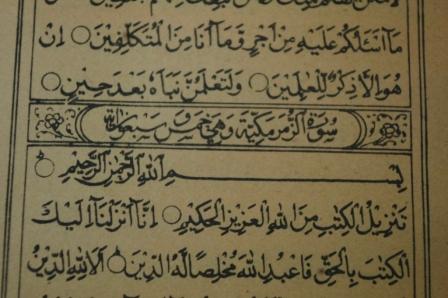 مَآ اَسْـَٔلُكُمْ عَلَيْهِ مِنْ اَجْرٍ وَّمَآ اَنَا مِنَ الْمُتَكَلِّفِيْنَ ○ اِنْ
هُوَ اِلَّا ذِكْرٌ لِّلْعٰلَمِيْنَ ○ وَلَتَعْلَمُنَّ نَبَاَهٗ بَعْدَ حِيْنٍ ○
سُوْرَةُ الزُّمَرِ مَكِّيَّةٌ وَّهِيَ خَمْسٌ وَّسَبْعُوْنَ اٰيَةً
بِسْمِ اللّٰهِ الرَّحْمٰنِ الرَّحِيْمِ ○
تَنْزِيْلُ الْكِتٰبِ مِنَ اللّٰهِ الْعَزِيْزِ الْحَكِيْمِ ○ اِنَّآ اَنْزَلْنَآ اِلَيْكَ
الْكِتٰبَ بِالْحَقِّ فَاعْبُدِ اللّٰهَ مُخْلِصًا لَّهُ الدِّيْنَ ○ اَلَا لِلّٰهِ الدِّيْنُ